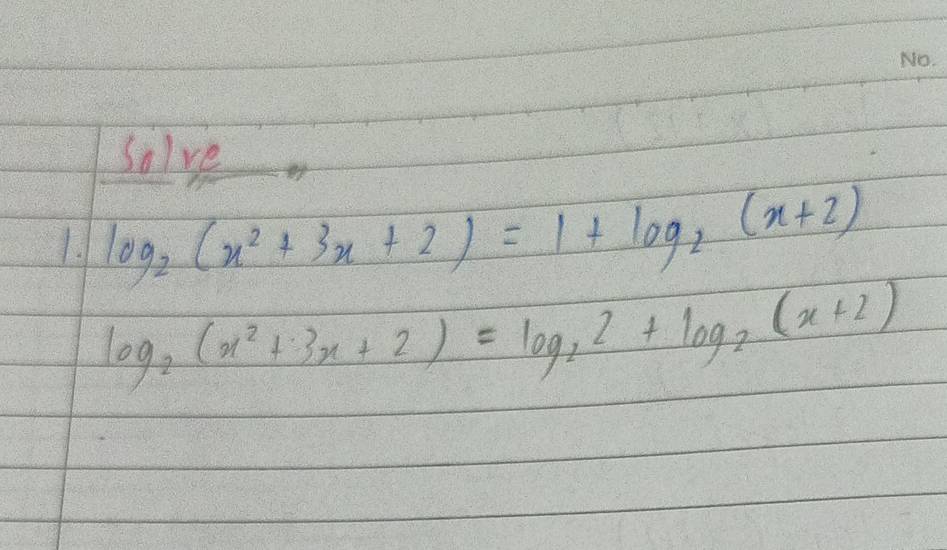 No.
Solve
1. log₂ (x² + 3x + 2) = 1 + log₂ (x+2)
log₂ (x² + 3x + 2) = log₂ 2 + log₂ (x+2)